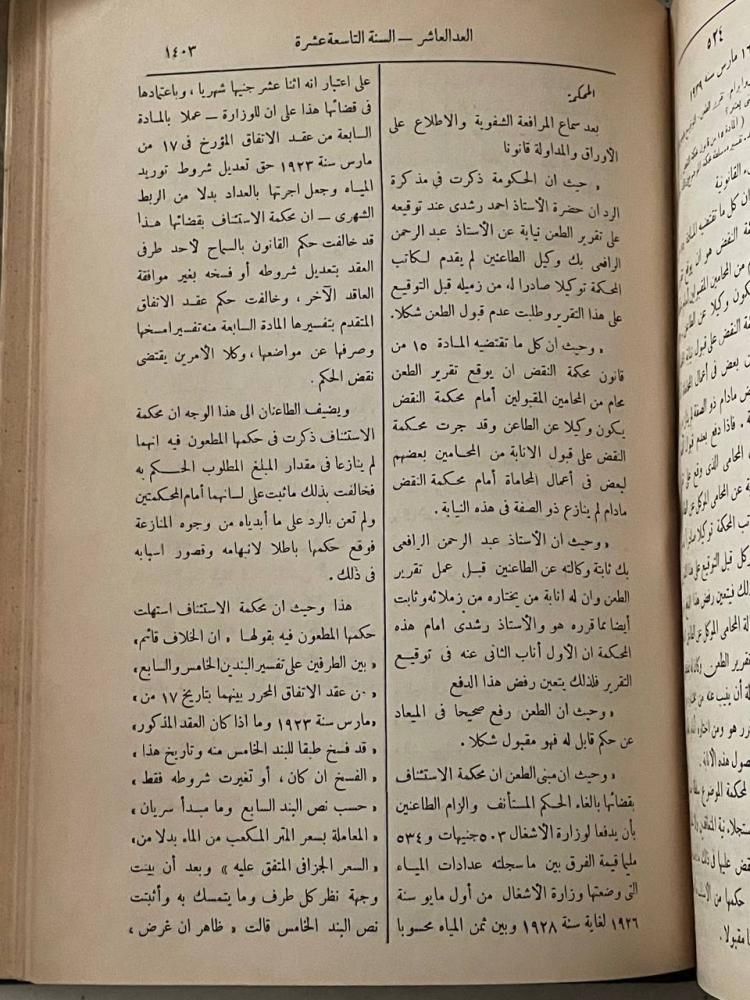 العدد العاشر — السنة التاسعة عشرة
١٤٠٣
المحكمة
بعد سماع المرافعة الشفوية والاطلاع على
الأوراق والمداولة قانونا
« حيث ان الحكومة ذكرت في مذكرة
الرد ان حضرة الأستاذ احمد رشدى عند توقيعه
على تقرير الطعن نيابة عن الأستاذ عبد الرحمن
الرافعى بك وكيل الطاعنين لم يقدم لكاتب
المحكمة توكيلا صادرا له من زميله قبل التوقيع
على هذا التقرير وطلبت عدم قبول الطعن شكلا.
« وحيث ان كل ما تقتضيه المادة ١٥ من
قانون محكمة النقض ان يوقع تقرير الطعن
محام من المحامين المقبولين أمام محكمة النقض
يكون وكيلا عن الطاعن وقد جرت محكمة
النقض على قبول الانابة من المحامين بعضهم
لبعض فى أعمال المحاماة أمام محكمة النقض
مادام لم ينازع ذو الصفة فى هذه النيابة .
« وحيث ان الأستاذ عبد الرحمن الرافعى
بك ثابتة وكالته عن الطاعنين قبل عمل تقرير
الطعن وان له انابة من يختاره من زملائه وثابت
أيضا مما قرره هو والأستاذ رشدى امام هذه
المحكمة ان الأول أناب الثانى عنه فى توقيع
التقرير فلذلك يتعين رفض هذا الدفع
« وحيث ان الطعن رفع صحيحا فى الميعاد
عن حكم قابل له فهو مقبول شكلا .
« وحيث ان مبنى الطعن ان محكمة الاستئناف
بقضائها بالغاء الحكم المستأنف والزام الطاعنين
بأن يدفعا لوزارة الأشغال ٥٠٣ جنيهات و ٥٣٤
مليما قيمة الفرق بين ما سجلته عدادات المياه
التى وضعتها وزارة الأشغال من أول مايو سنة
١٩٢٦ لغاية سنة ١٩٢٨ وبين ثمن المياه محسوبا
على اعتبار انه اثنا عشر جنيها شهريا ، وباعتمادها
فى قضائها هذا على ان للوزارة — عملا بالمادة
السابعة من عقد الاتفاق المؤرخ فى ١٧ من
مارس سنة ١٩٢٣ حق تعديل شروط توريد
المياه وجعل اجرتها بالعداد بدلا من الربط
الشهرى — ان محكمة الاستئناف بقضائها هذا
قد خالفت حكم القانون بالسماح لأحد طرفى
العقد بتعديل شروطه أو فسخه بغير موافقة
العاقد الآخر ، وخالفت حكم عقد الاتفاق
المتقدم بتفسيرها المادة السابعة منه تفسيرا مسخها
وصرفها عن مواضعها ، وكلا الأمرين يقتضى
نقض الحكم .
ويضيف الطاعنان الى هذا الوجه ان محكمة
الاستئناف ذكرت فى حكمها المطعون فيه انهما
لم ينازعا فى مقدار المبلغ المطلوب الحكم به
فخالفت بذلك ما ثبت على لسانهما أمام المحكمتين
ولم تعن بالرد على ما أبدياه من وجوه المنازعة
فوقع حكمها باطلا لانبهامه وقصور اسبابه
فى ذلك .
هذا وحيث ان محكمة الاستئناف استهلت
حكمها المطعون فيه بقولها « ان الخلاف قائم ،
« بين الطرفين على تفسير البندين الخامس والسابع،
« من عقد الاتفاق المحرر بينهما بتاريخ ١٧ من ،
« مارس سنة ١٩٢٣ وما اذا كان العقد المذكور ،
« قد فسخ طبقا للبند الخامس منه وتاريخ هذا ،
« الفسخ ان كان ، أو تغيرت شروطه فقط ،
« حسب نص البند السابع وما مبدأ سريان ،
« المعاملة بسعر المتر المكعب من الماء بدلا من،
« السعر الجزافى المتفق عليه » وبعد أن بينت
وجهة نظر كل طرف وما يتمسك به وأثبتت
نص البند الخامس قالت « ظاهر ان غرض ،
٥٢٤